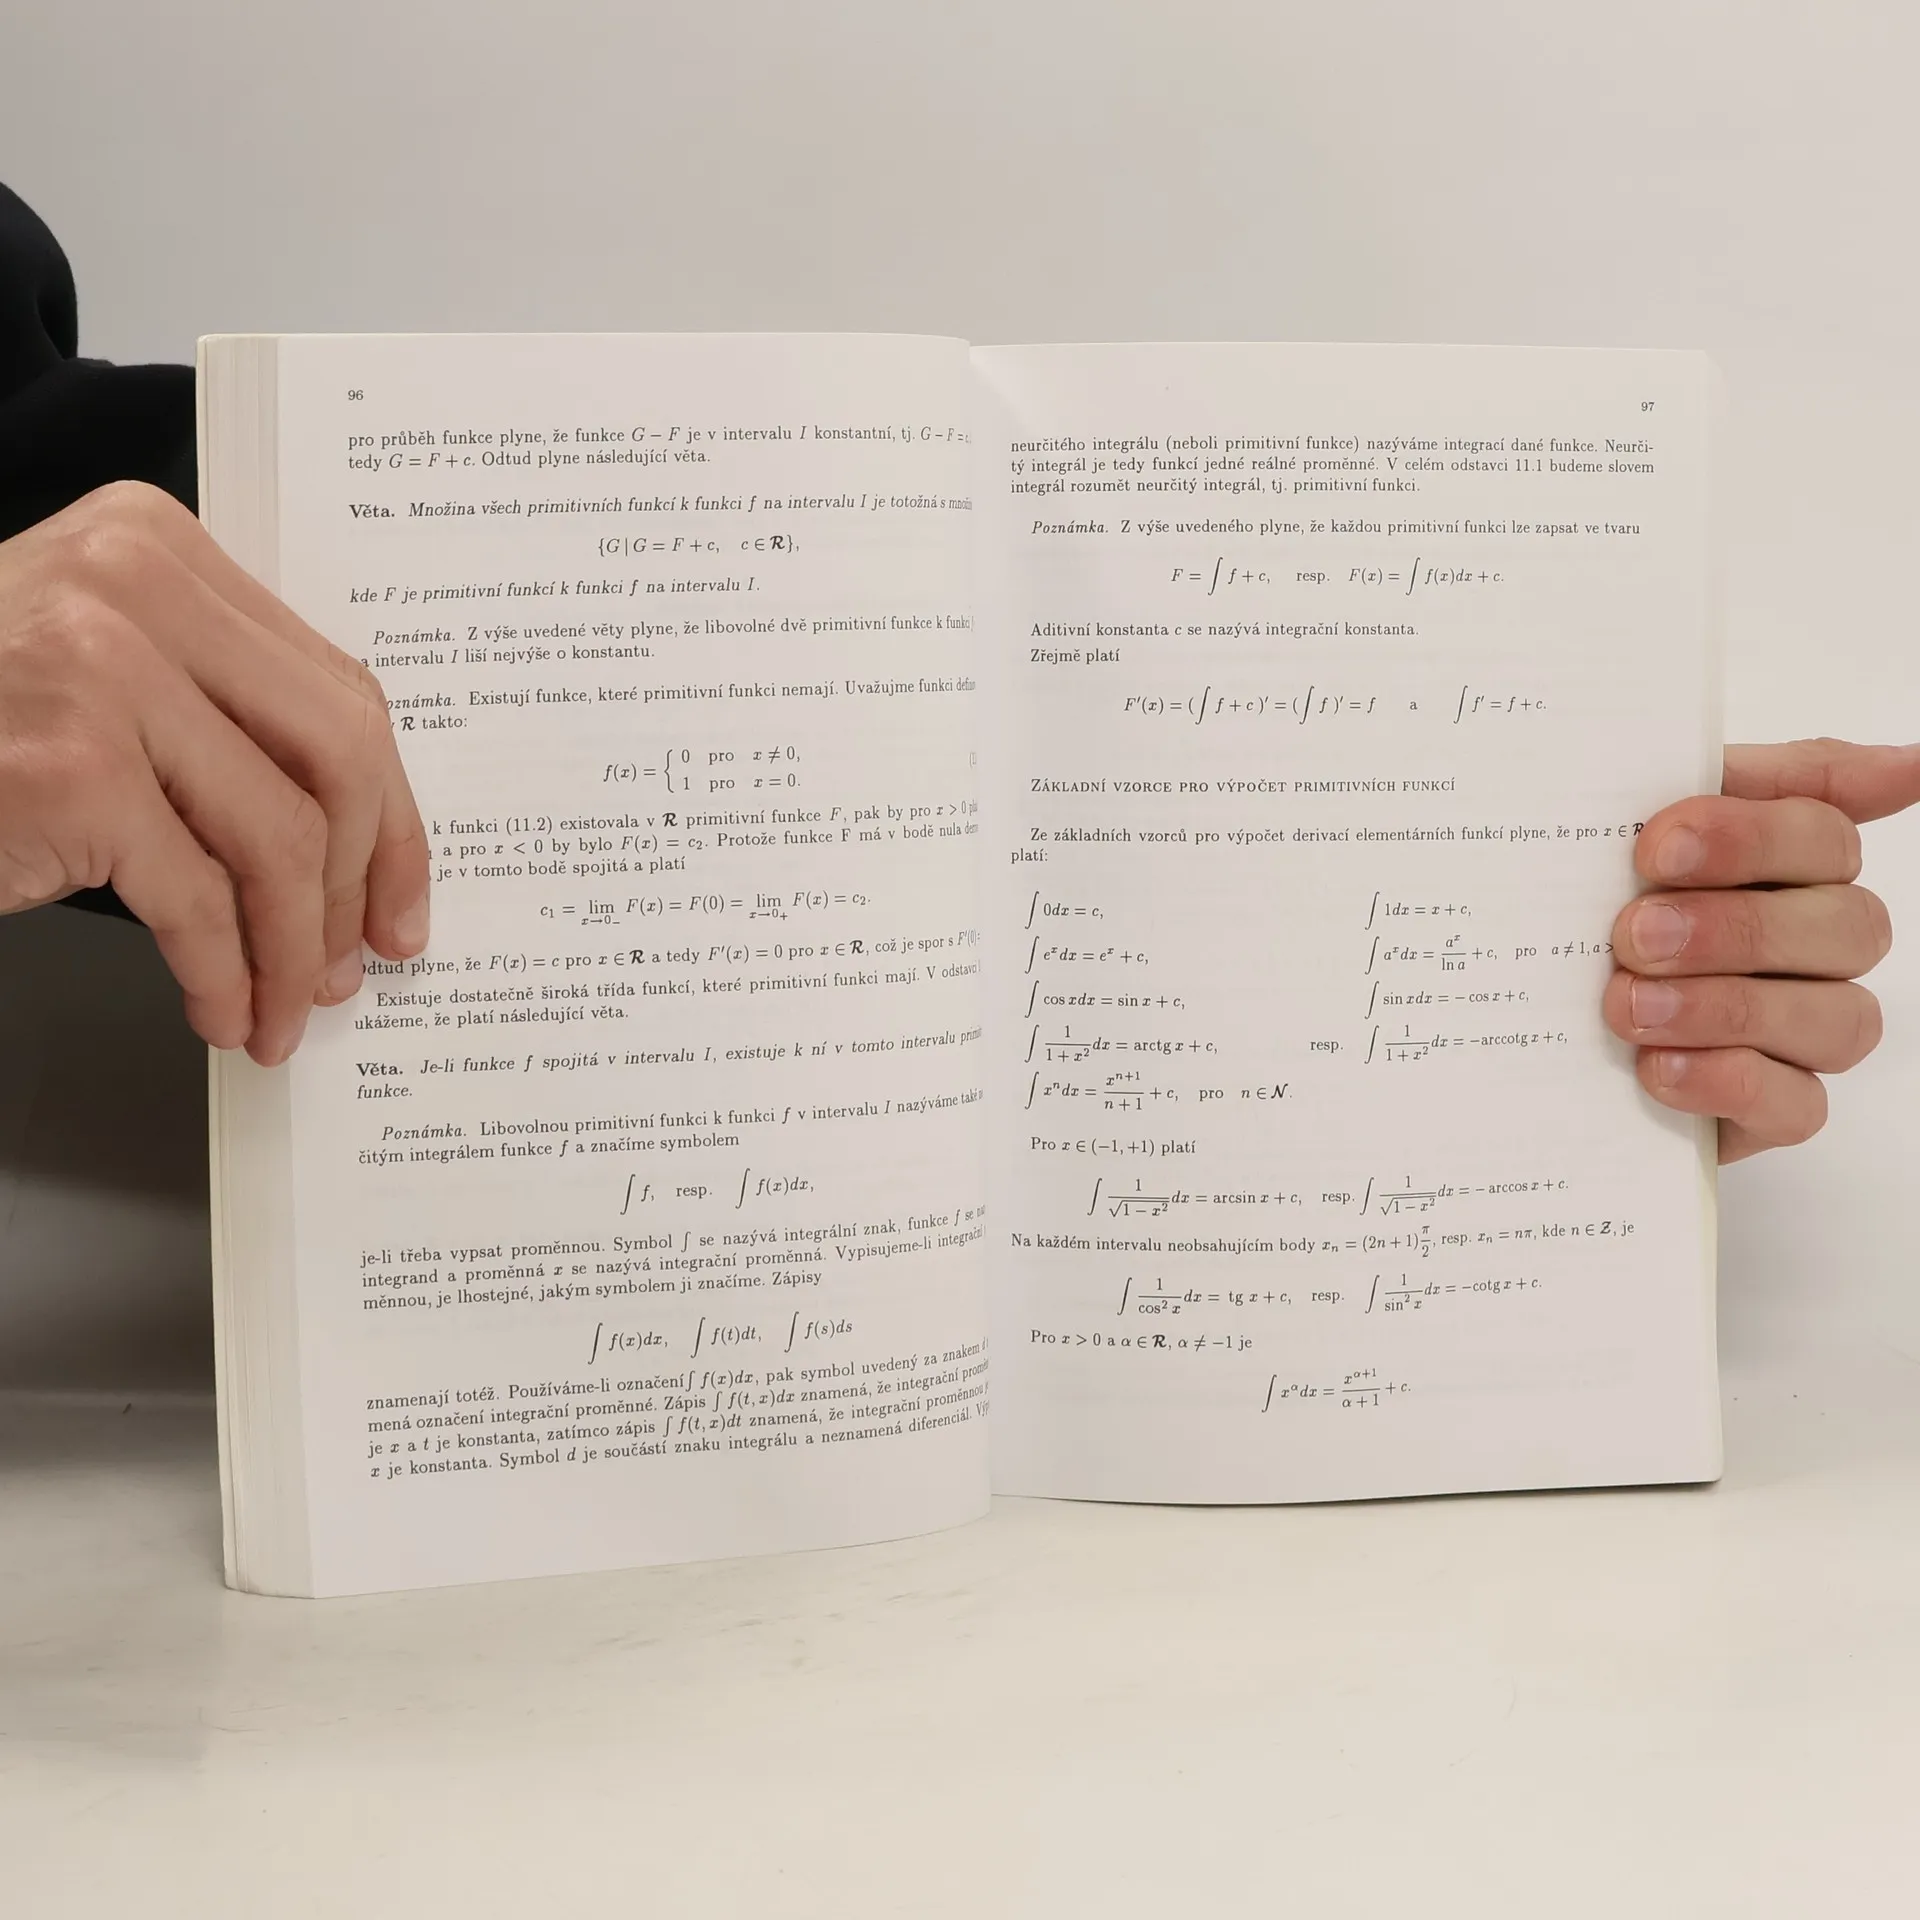 96
pro průběh funkce plyne, že funkce G − F je v intervalu I konstantní, tj. G − F =
tedy G = F + c. Odtud plyne následující věta.
Věta. Množina všech primitivních funkcí k funkci f na intervalu I je totožná s
{G | G = F + c, c ∈ R},
kde F je primitivní funkcí k funkci f na intervalu I.
Poznámka. Z výše uvedené věty plyne, že libovolné dvě primitivní funkce k funkci
intervalu I liší nejvýše o konstantu.
Existují funkce, které primitivní funkci nemají. Uvažujme funkci
R takto:
f(x) = { 0 pro x ≠ 0,
1 pro x = 0.
k funkci (11.2) existovala v R primitivní funkce F, pak by pro x > 0
a pro x < 0 by bylo F(x) = c₂. Protože funkce F má v bodě nula
je v tomto bodě spojitá a platí
c₁ = lim F(x) = F(0) = lim F(x) = c₂.
x→0₋ x→0₊
plyne, že F(x) = c pro x ∈ R a tedy F'(x) = 0 pro x ∈ R, což je spor s F'(0)
Existuje dostatečně široká třída funkcí, které primitivní funkci mají. V
ukážeme, že platí následující věta.
Věta. Je-li funkce f spojitá v intervalu I, existuje k ní v tomto intervalu
funkce.
Poznámka. Libovolnou primitivní funkci k funkci f v intervalu I nazýváme
čitým integrálem funkce f a značíme symbolem
∫ f, resp. ∫ f(x)dx,
je-li třeba vypsat proměnnou. Symbol ∫ se nazývá integrální znak, funkce f se
integrand a proměnná x se nazývá integrační proměnná. Vypisujeme-li integrační
měnnou, je lhostejné, jakým symbolem ji značíme. Zápisy
∫ f(x)dx, ∫ f(t)dt, ∫ f(s)ds
znamenají totéž. Používáme-li označení ∫ f(x)dx, pak symbol uvedený za znakem d
mená označení integrační proměnné. Zápis ∫ f(t, x)dx znamená, že integrační
je x a t je konstanta, zatímco zápis ∫ f(t, x)dt znamená, že integrační proměnnou
x je konstanta. Symbol d je součástí znaku integrálu a neznamená diferenciál.
97
neurčitého integrálu (neboli primitivní funkce) nazýváme integrací dané funkce. Neurči-
tý integrál je tedy funkcí jedné reálné proměnné. V celém odstavci 11.1 budeme slovem
integrál rozumět neurčitý integrál, tj. primitivní funkci.
Poznámka. Z výše uvedeného plyne, že každou primitivní funkci lze zapsat ve tvaru
F = ∫ f + c, resp. F(x) = ∫ f(x)dx + c.
Aditivní konstanta c se nazývá integrační konstanta.
Zřejmě platí
F'(x) = (∫ f + c)' = (∫ f)' = f a ∫ f' = f + c.
ZÁKLADNÍ VZORCE PRO VÝPOČET PRIMITIVNÍCH FUNKCÍ
Ze základních vzorců pro výpočet derivací elementárních funkcí plyne, že pro x ∈ R
platí:
∫ 0dx = c, ∫ 1dx = x + c,
∫ eˣdx = eˣ + c, ∫ aˣdx = aˣ/ln a + c, pro a ≠ 1, a >
∫ cos xdx = sin x + c, ∫ sin xdx = − cos x + c,
∫ 1/(1 + x²) dx = arctg x + c, resp. ∫ 1/(1 + x²) dx = −arccotg x + c,
∫ xⁿdx = xⁿ⁺¹/(n + 1) + c, pro n ∈ N.
Pro x ∈ (−1, +1) platí
∫ 1/√(1 − x²) dx = arcsin x + c, resp. ∫ 1/√(1 − x²) dx = − arccos x + c.
Na každém intervalu neobsahujícím body xₙ = (2n + 1)π/2, resp. xₙ = nπ, kde n ∈ Z, je
∫ 1/cos² x dx = tg x + c, resp. ∫ 1/sin² x dx = −cotg x + c.
Pro x > 0 a α ∈ R, α ≠ −1 je
∫ x^α dx = x^(α+1)/(α + 1) + c.